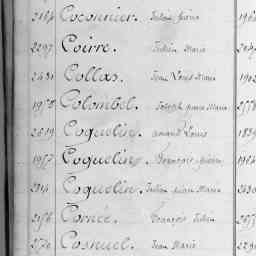 2164 Coconnier. Julien pierre 196
2297 Coirre. Julien Marie 204
2431 Collas. Jean Louis Marie 190
1978 Colombel. Joseph pierre Marie 2778
2619 Coquelin. amand Louis 1839
1957 Coquelin. François pierre 1964
2914 Coquelin. Julien pierre Marie 2630
2156 Cornée. François Julien 2655
2770 Cosnuel. Jean Marie 229